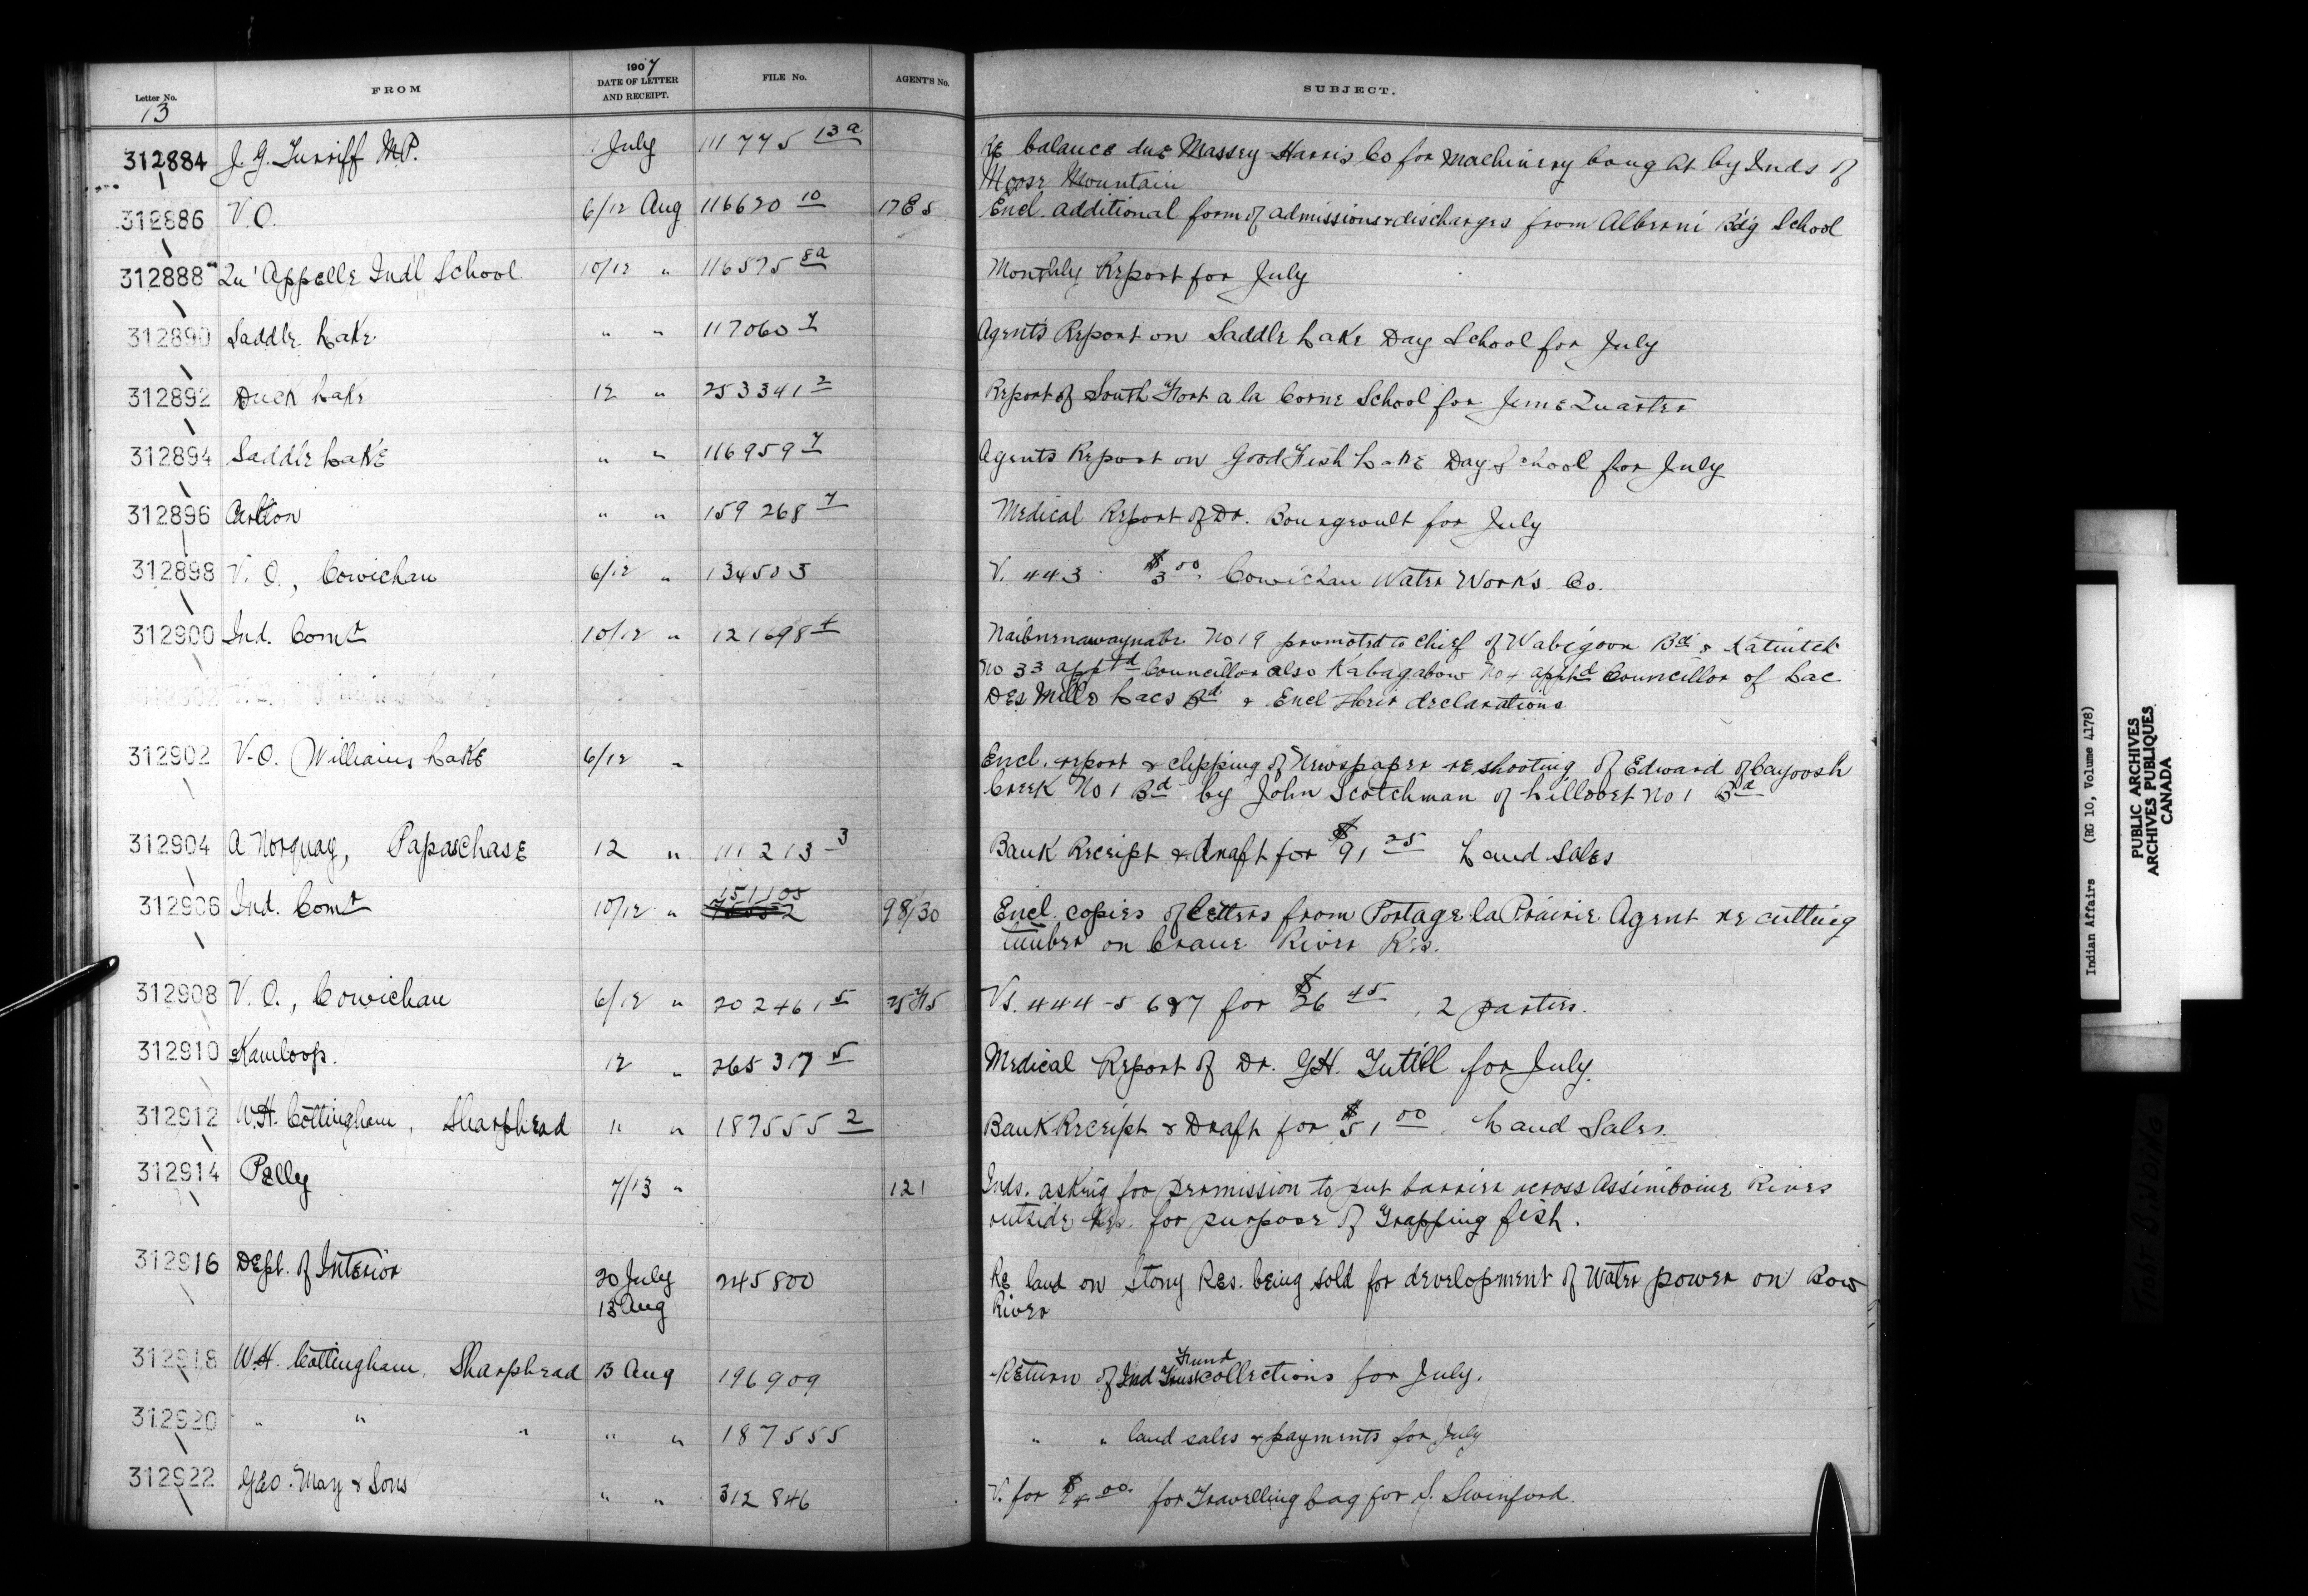 Letter No. FROM 1907 DATE OF LETTER AND RECEIPT. FILE No. AGENT'S No. SUBJECT.
13
312884 J. G. Turriff M.P. July 111775 13a Re balance due Massey-Harris Co for Machinery bought by Inds of
Moose Mountain
312886 V.O. 6/12 Aug 116620 10 Encl. additional form of admissions & discharges from Alberni Bdg School
312888 Qu'Appelle Ind'l School 10/12 " 116575 8a Monthly Report for July
312890 Saddle Lake " " 117060 7 Agents Report on Saddle Lake Day School for July
312892 Duck Lake 12 " 253341 2 Report of South Fort a la Corne School for June Quarter
312894 Saddle Lake " " 116959 7 Agents Report on Good Fish Lake Day School for July
312896 Carlton " " 159268 7 Medical Report of Dr. Bourgeoult for July
312898 V.O., Cowichan 6/12 " 134503 V. 443 $3.00 Cowichan Water Works Co.
312900 Ind. Comr 10/12 " 121698 No 19 promoted to Chief of Wabigoon Bd &
No 33 apptd Councillor also Kabagabow No 4 apptd Councillor of Lac
Des Mille Lacs Bd & Encl their declarations
312902 V.O. Williams Lake 6/12 " Encl. report & clipping of Newspaper re shooting of Edward of Cayoosh
Creek No 1 Bd by John Scotchman of Lillooet No 1 Bd
312904 A Norquay, Papaschase 12 " 111213 3 Bank Receipt & draft for $91 25 Land Sales
312906 Ind. Comr 10/12 " 151105 98/30 Encl. copies of letters from Portage la Prairie Agent re cutting
timber on Crane River Res.
312908 V.O., Cowichan 6/12 " 202461 5 Vs. 444-5 687 for $26 45, 2 parties.
312910 Kamloops. 12 " 265317 5 Medical Report of Dr. G.H. Tutill for July.
312912 W.H. Cottingham, Sharphead " " 187555 2 Bank Receipt & Draft for $51 00. Land Sales.
312914 Pelly 7/13 " 121 Inds. asking for permission to put barrier across Assiniboine River
outside Res. for purpose of Trapping fish.
312916 Dept. of Interior 20 July 245800 Re land on Stony Res. being sold for development of Water power on Bow
13 Aug River
312918 W.H. Cottingham, Sharphead 13 Aug 196909 Return of Ind Trust Fund collections for July.
312920 " " " " " 187555 " " land sales & payments for July
312922 Geo. May & Sons " " 312846 V. for for Travelling bag for S. Swinford.
Indian Affairs (RG 10, Volume 4178)
PUBLIC ARCHIVES
ARCHIVES PUBLIQUES
CANADA